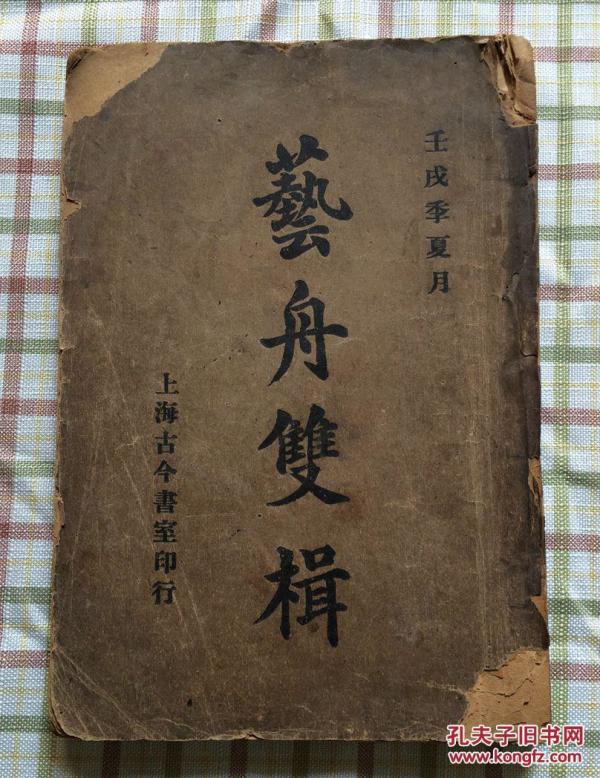 壬戌季夏月
藝舟雙楫
上海古今書室印行
孔夫子旧书网
www.kongfz.com